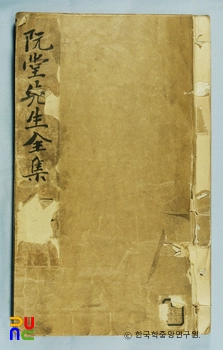 阮堂先生全集
© 한국학중앙연구원